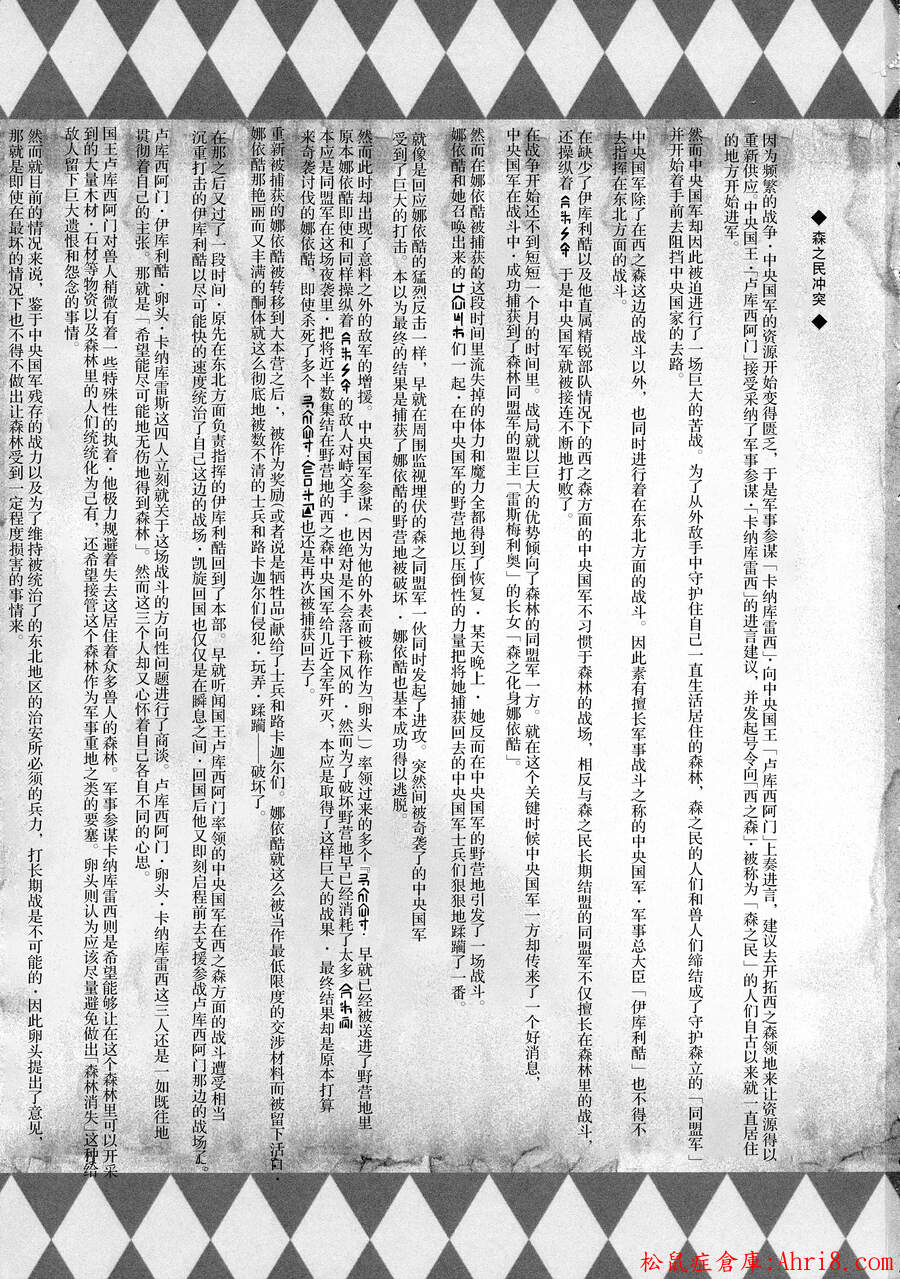 ◆ 森之民冲突 ◆
因为频繁的战争·中央国军的资源开始变得匮乏，于是军事参谋「卡纳库雷西」·向中央国王「卢库西阿门」上奏进言，建议去开拓西之森领地来让资源得以
重新供应·中央国王·「卢库西阿门」接受采纳了军事参谋·「卡纳库雷西」的进言建议，并发起号令向「西之森」·被称为「森之民」的人们自古以来就一直居住
的地方开始进军。
然而中央国军却因此被迫进行了一场巨大的苦战。为了从外敌手中守护住自己一直生活居住的森林，森之民的人们和兽人们缔结成了守护森立的「同盟军」
并开始着手前去阻挡中央国家的去路。
中央国军除了在西之森这边的战斗以外，也同时进行着在东北方面的战斗。因此素有擅长军事战斗之称的中央国军·军事总大臣「伊库利酷」也不得不
去指挥在东北方面的战斗。
在缺少了伊库利酷以及他直属精锐部队情况下的西之森方面的中央国军不习惯于森林的战场，相反与森之民长期结盟的同盟军不仅擅长在森林里的战斗，
还操纵着 于是中央国军就被接连不断地打败了。
在战争开始还不到短短一个月的时间里。战局就以巨大的优势倾向了森林的同盟军一方。就在这个关键时候中央国军一方却传来了一个好消息，
中央国军在战斗中·成功捕获到了森林同盟军的盟主「雷斯梅利奥」的长女「森之化身娜依酷」。
然而在娜依酷被捕获的这段时间里流失掉的体力和魔力全都得到了恢复·某天晚上·她反而在中央国军的野营地引发了一场战斗。
娜依酷和她召唤出来的 们一起·在中央国军的野营地以压倒性的力量把将她捕获回去的中央国军士兵们狠狠地蹂躏了一番。
就像是回应娜依酷的猛烈反击一样，早就在周围监视埋伏的森之同盟军一伙同时发起了进攻。突然间被奇袭了的中央国军
受到了巨大的打击。本以为最终的结果是捕获了娜依酷的野营地被破坏·娜依酷也基本成功得以逃脱。
然而此时却出现了意料之外的敌军的增援。中央国军参谋（因为他的外表而被称作为「卵头」）率领过来的多个『 早就已经被送进了野营地里
原本娜依酷即使和同样操纵着 的敌人对峙交手·也绝对是不会落于下风的·然而为了破坏野营地早已经消耗了太多
本应是同盟军在这场夜袭里·把将近半数集结在野营地的西之森中央国军给几近全军歼灭，本应是取得了这样巨大的战果·最终结果却是原本打算
来奇袭讨伐的娜依酷，即使杀死了多个 也还是再次被捕获回去了。
重新被捕获的娜依酷被转移到大本营之后·，被作为奖励(或者说是牺牲品)献给了士兵和路卡迦尔们。娜依酷就这么被当作最低限度的交涉材料而被留下活口·
娜依酷那艳丽而又丰满的酮体就这么彻底地被数不清的士兵和路卡迦尔们侵犯·玩弄·蹂躏——破坏了。
在那之后又过了一段时间·原先在东北方面负责指挥的伊库利酷回到了本部。早就听闻国王卢库西阿门率领的中央国军在西之森方面的战斗遭受相当
沉重打击的伊库利酷以尽可能快的速度统治了自己这边的战场·凯旋回国也仅仅是在瞬息之间·回国后他又即刻启程前去支援参战卢库西阿门那边的战场了。
卢库西阿门·伊库利酷·卵头·卡纳库雷斯这四人立刻就关于这场战斗的方向性问题进行了商谈。卢库西阿门·卵头·卡纳库雷西这三人还是一如既往地
贯彻着自己的主张。那就是「希望能尽可能地无伤地得到森林」。然而这三个人却又心怀着自己各自不同的心思。
国王卢库西阿门对兽人稍微有着一些特殊性的执着·他极力规避着失去这居住着众多兽人的森林。军事参谋卡纳库雷西则是希望能够让在这个森林里可以开采
到的大量木材·石材等物资以及森林里的人们统统化为己有，还希望接管这个森林作为军事重地之类的要塞。卵头则认为应该尽量避免做出「森林消失」这种给
敌人留下巨大遗恨和怨念的事情。
然而就目前的情况来说，鉴于中央国军残存的战力以及为了维持被统治了的东北地区的治安所必须的兵力，打长期战是不可能的·因此卵头提出了意见，
那就是即使在最坏的情况下也不得不做出让森林受到一定程度损害的事情来。
松鼠症倉庫:Ahri8.com